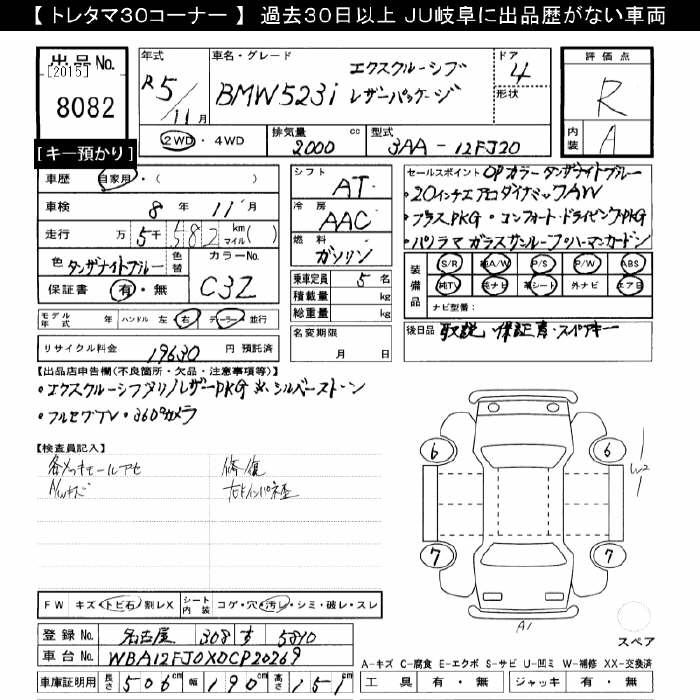 【 トレタマ30コーナー 】 過去30日以上 JU岐阜に出品歴がない車両
出品No.
[2015]
8082
[キー預かり]
年式
R5/11月
車名・グレード
BMW523i
エクスクルーシブ
レザーパッケージ
ドア
4
形状
評価点
R
内装
A
2WD ・ 4WD
排気量
2000 cc
型式
3AA - 12FJ20
車歴
自家用・(
車検
8年 11月
走行
万 5千 582 km マイル( )
色
タンザナイトブルー
色替
カラーNo.
C3Z
保証書
有・無
モデル年式
年
ハンドル 左・右
ディーラー・並行
リサイクル料金
19630 円 預託済
シフト
AT
冷房
AAC
燃料
ガソリン
乗車定員 5 名
積載量 kg
総重量 kg
名変期限
月 日
セールスポイント OPカラータンザナイトブルー
・20インチエアロダイナミックAW
・プラスPKG・コンフォートドライビングPKG
・パノラマガラスサンルーフ・ハーマンカードン
装備品
S/R 純A/W P/S P/W ABS
純TV 純ナビ 革シート 外ナビ エアB
ナビ型番:
後日品 取説・保証書・スペアキー
【出品店申告欄(不良箇所・欠品・注意事項等)】
・エクスクルーシブメリノレザーPKG
シルバーストーン
・フルセグTV・360°カメラ
【検査員記入】
修復
FW
キズ・トビ石・割レX
シート内装
コゲ・穴・汚レ・シミ・破レ・スレ
登録No.
名古屋 308 す 5810
車台No.
WBA12FJ0X0CP20269
車庫証明用
長さ 506cm
幅 190cm
高さ 151
6
6
W2
7
7
A1
スペア
A-キズ C-腐食 E-エクボ S-サビ U-凹ミ W-補修 XX-交換済
工具 有・無
ジャッキ 有・無